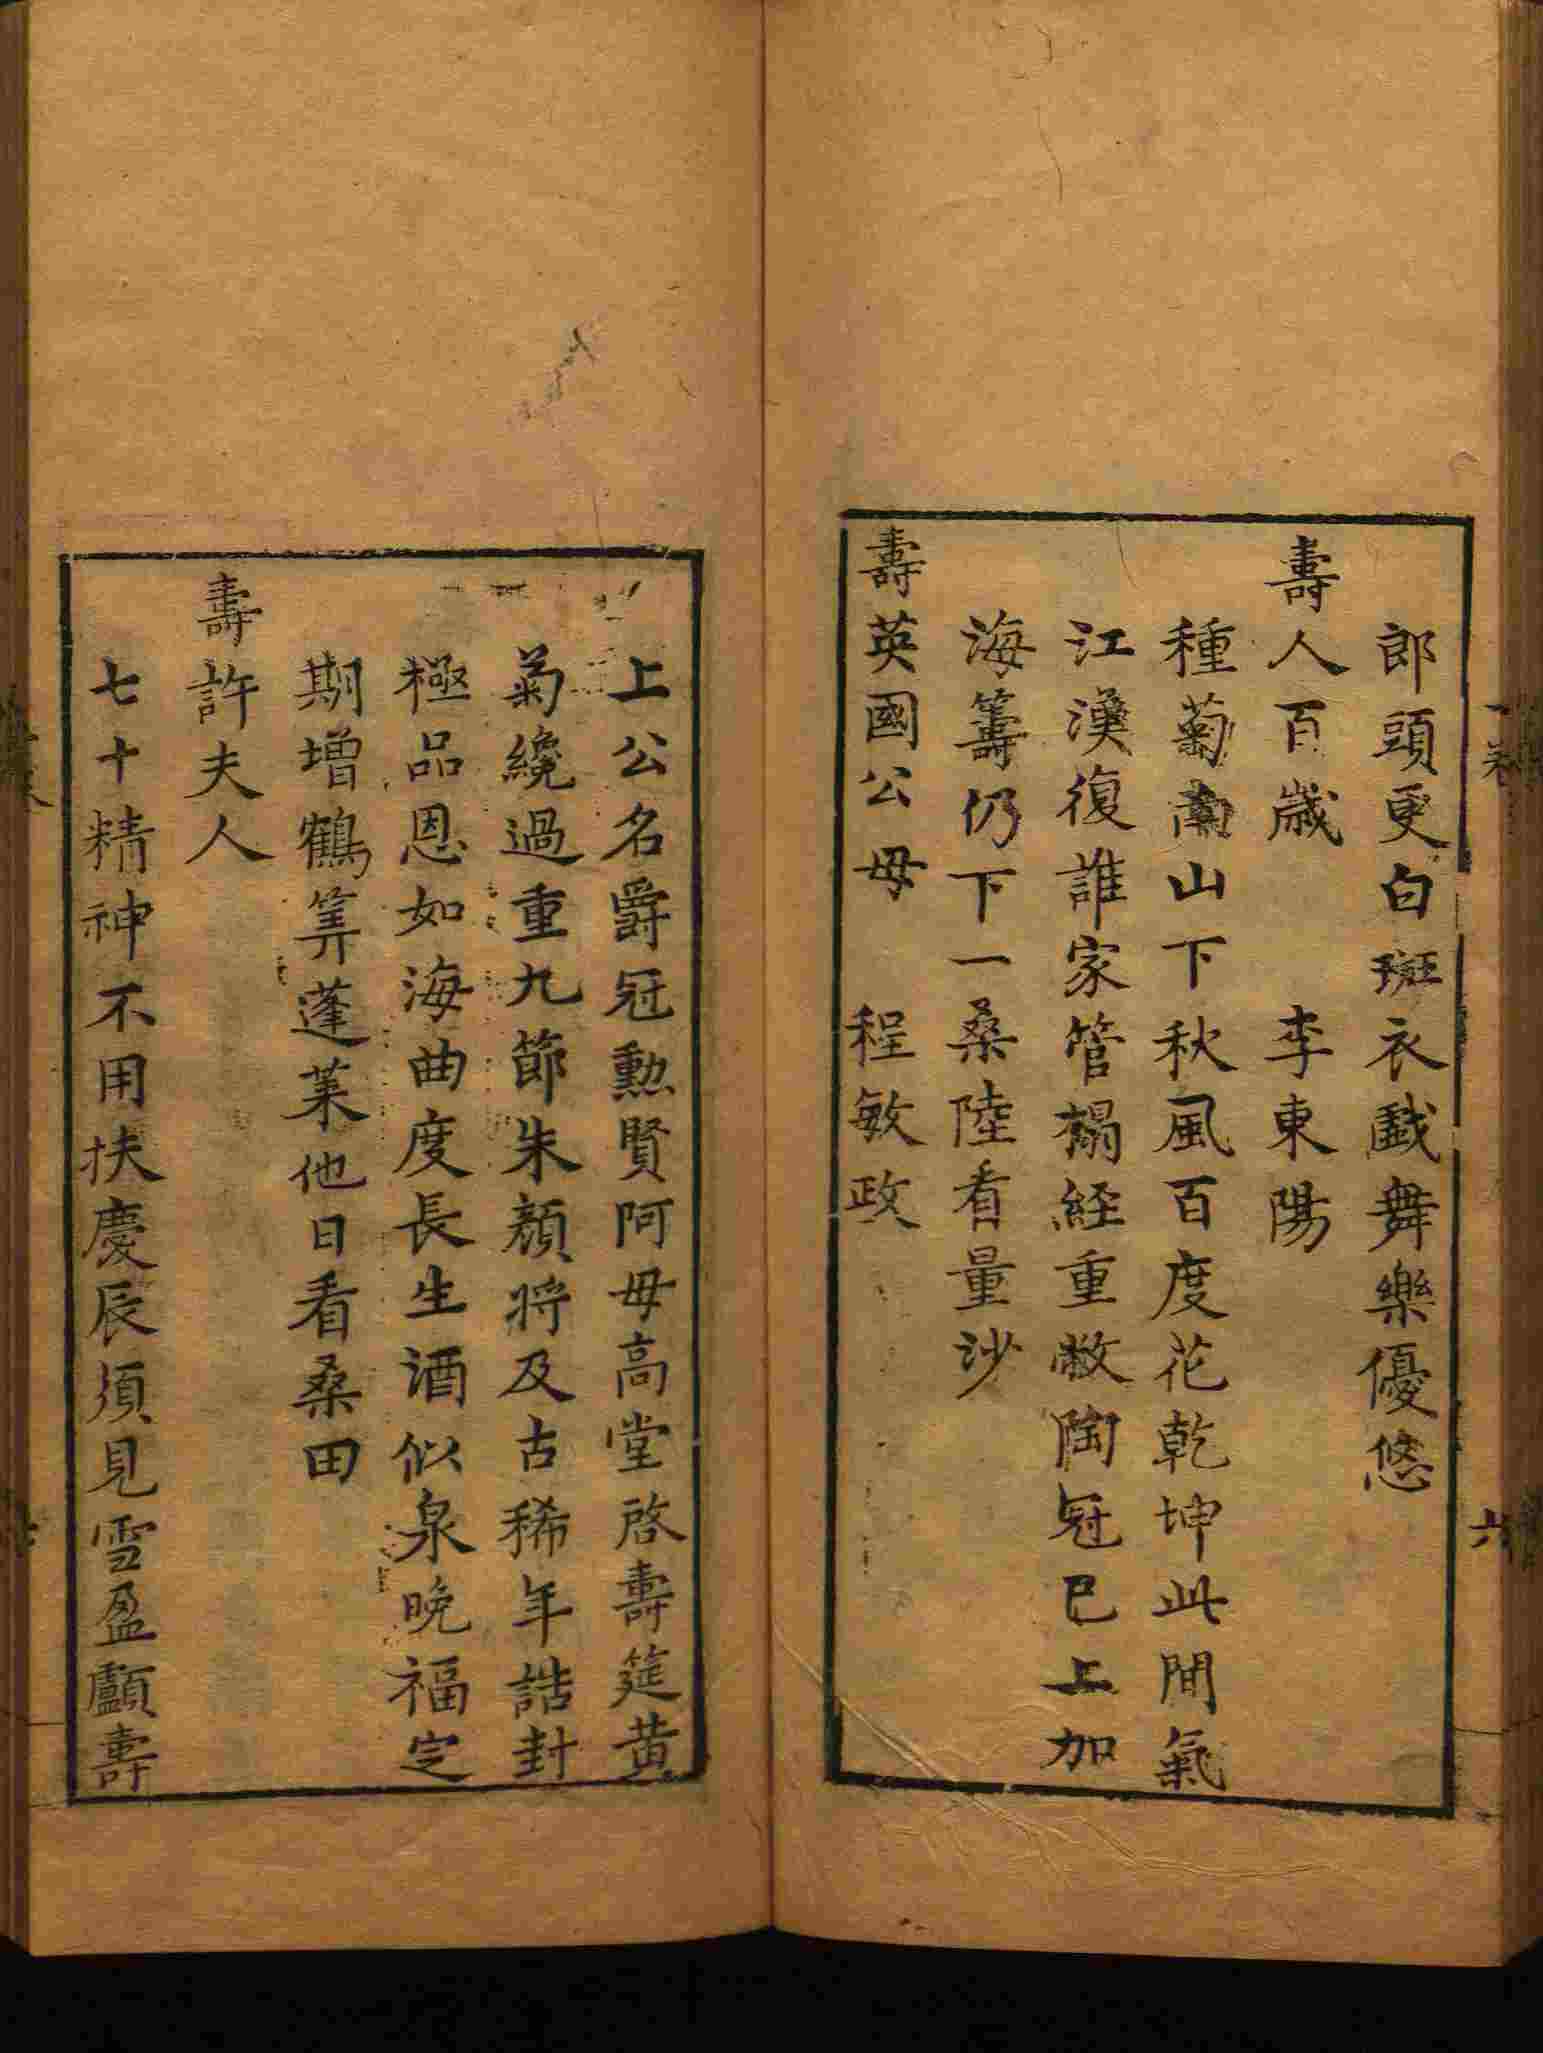 郎頭更白斑衣戲舞樂優悠
壽人百歲　李東陽
種菊南山下秋風百度花乾坤此間氣
江漢復誰家管榻經重敝陶冠已上加
海籌仍下一桑陸看量沙
壽英國公母　程敏政
上公名爵冠勲賢阿母高堂啓壽筵黄
菊纔過重九節朱顔將及古稀年誥封
極品恩如海曲度長生酒似泉晚福定
期增鶴筭蓬莱他日看桑田
壽許夫人
七十精神不用扶慶辰須見雪盈顱壽